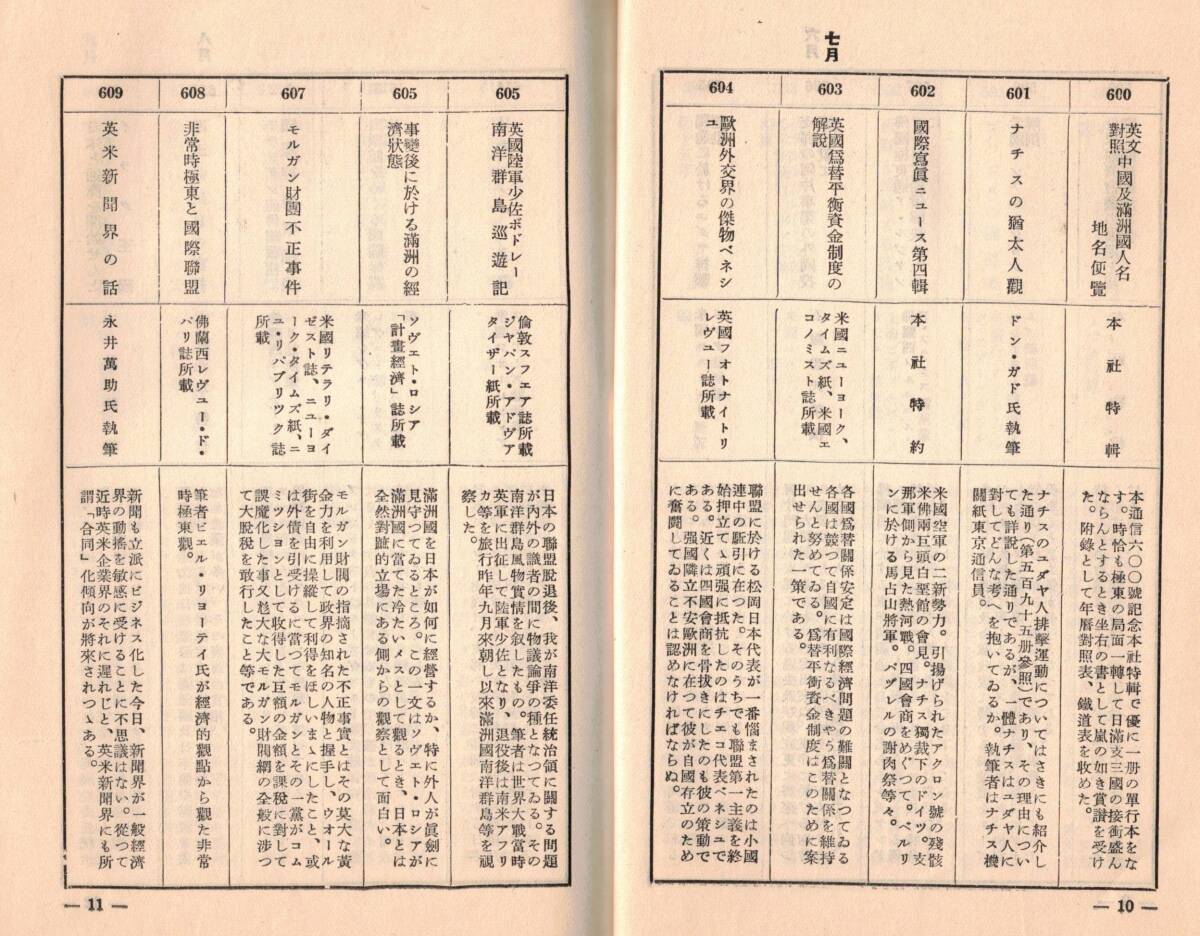 七月
600
英文中國及滿洲國人名
對照
地名便覽
本社特輯
本通信六〇〇號記念本社特輯で優に一册の單行本をな
す。時恰も極東の局面一轉して日滿支三國の接衝盛ん
ならんとするとき坐右の書として嵐の如き賞讃を受け
た。附錄として年曆對照表、鐵道表を收めた。
601
ナチスの猶太人觀
ドン・ガド氏執筆
ナチスのユダヤ人排擊運動についてはさきにも紹介し
た通り(第五百九十五册參照)であり、その理由につい
ても詳說した通りであるが、一體ナチスはユダヤ人に
對してどんな考へを抱いてゐるか。執筆者はナチス機
關紙東京通信員。
602
國際寫眞ニユース第四輯
本社特約
米國空軍の二新勢力。引揚げられたアクロン號の殘骸
米佛兩巨頭白堊館の會見。ナチス獨裁下のドイツ。支
那軍側から見た熱河戰。四國會商をめぐつて。ベルリ
ンに於ける馬占山將軍。バヅレルの謝肉祭等々。
603
英國爲替平衡資金制度の
解說
米國ニユーヨーク、
タイムズ紙、米國エ
コノミスト誌所載
各國爲替關係安定は國際經濟問題の難關となつてゐる
各國は競つて自國に有利なるべきやう爲替關係を維持
せんと努めてゐる。爲替平衡資金制度はこのために案
出せられた一策である。
604
歐洲外交界の傑物ベネシ
ユ
英國フオトナイトリ
レヴユー誌所載
聯盟に於ける松岡日本代表が一番惱まされたのは小國
連中の駈引に在つた。そのうちでも聯盟第一主義を終
始押立てゝ頑强に抵抗したのはチエコ代表ベネシユで
ある。近くは四國會商を骨拔きにしたのも彼の策動で
ある。强國隣立不安歐洲に在つて彼が自國存立のため
に奮鬪してゐることは認めなければならぬ。
— 10 —
605
英國陸軍少佐ボドレー
南洋群島巡遊記
倫敦スフエア誌所載
ジヤパン・アドヴア
タイザー紙所載
日本の聯盟脫退後、我が南洋委任統治領に關する問題
が內外の識者の間に物議論爭の種となつてゐる。その
南洋群島風物實情を叙したもの。筆者は世界大戰當時
英軍に出征して陸軍少佐となり、退役後は南米アフリ
カ等を旅行昨年九月來朝し以來滿洲國南洋群島等を視
察した。
605
事變後に於ける滿洲の經
濟狀態
ソヴエト・ロシア
「計畫經濟」誌所載
滿洲國を日本が如何に經營するか、特に外人が眞劍に
見守つてゐるところ。この一文はソヴエト・ロシアが
滿洲國に當てた冷たいメスとして觀るとき、日本とは
全然對蹠的立場にある側からの觀察として面白い。
607
モルガン財團不正事件
米國リテラリ・ダイ
ゼスト誌、ニユーヨ
ーク・タイムズ紙、ニ
ユ・リパブリツク誌
所載
モルガン財閥の指摘された不正事實とはその莫大な黃
金力を利用して政界の知名の人物と握手し、ウオール
街を自由に操縱して利得をほしいまゝにしたこと、或
は外債を引受けるに當つてモルガンとその一黨がコム
ミツシヨンとして收得した巨額の金額を課稅に對して
誤魔化した事又尨大な大モルガン財閥網の全般に涉つ
て大脫稅を敢行したこと等である。
608
非常時極東と國際聯盟
佛蘭西レヴユー・ド・
パリ誌所載
筆者ピエル・リヨーテイ氏が經濟的觀點から觀た非常
時極東觀。
609
英米新聞界の話
永井萬助氏執筆
新聞も立派にビジネス化した今日、新聞界が一般經濟
界の動搖を敏感に受けることに不思議はない。從つて
近時英米企業界のそれに遲れじと、英米新聞界にも所
謂「合同」化傾向が將來されつゝある。
— 11 —